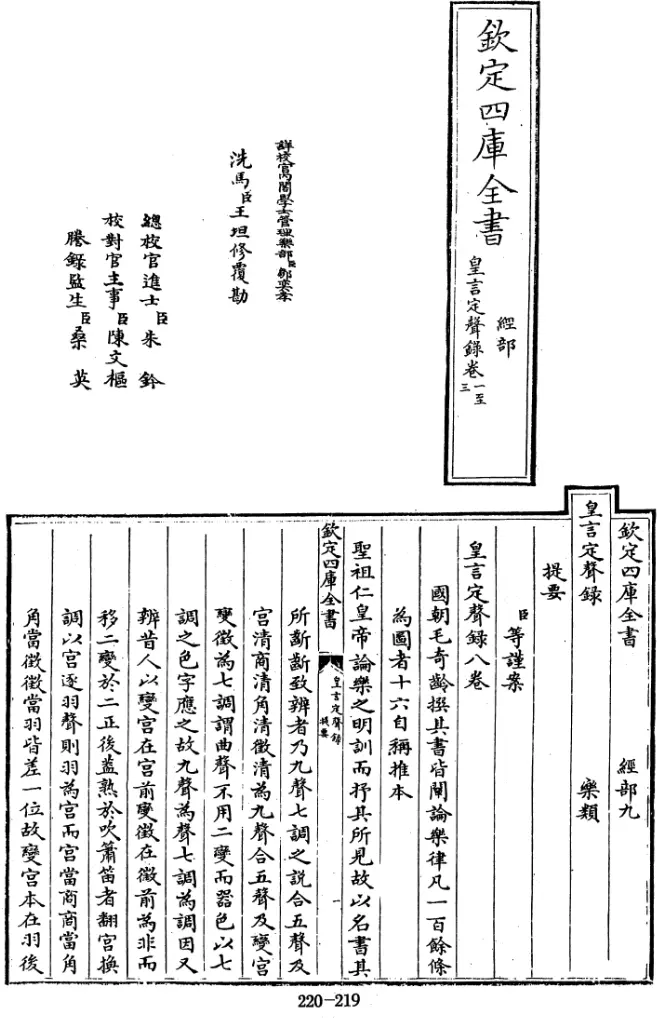 欽定四庫全書
經部
皇言定聲録卷一至三
詳校官內閣學士管理樂部臣鄒奕孝
洗馬臣王坦修覆勘
總校官進士臣朱鈐
校對官主事臣陳文樞
謄録監生臣桑英
欽定四庫全書 經部九
皇言定聲録 樂類
提要
臣等謹案
皇言定聲録八卷
國朝毛奇齡撰其書皆闡論樂律凡一百餘條
為圖者十六自稱推本
聖祖仁皇帝論樂之明訓而抒其所見故以名書其
欽定四庫全書 皇言定聲録 提要 一
所齗齗致辨者乃九聲七調之説合五聲及
宫清商清角清徵清為九聲合五聲及變宫
變徵為七調謂曲聲不用二變而器色以七
調之色字應之故九聲為聲七調為調因又
辨昔人以變宫在宫前變徵在徵前為非而
移二變於二正後葢熟於吹簫笛者翻宫換
調以宫逐羽聲則羽為宫而宫當商商當角
角當徵徵當羽皆差一位故變宫本在羽後
220-219